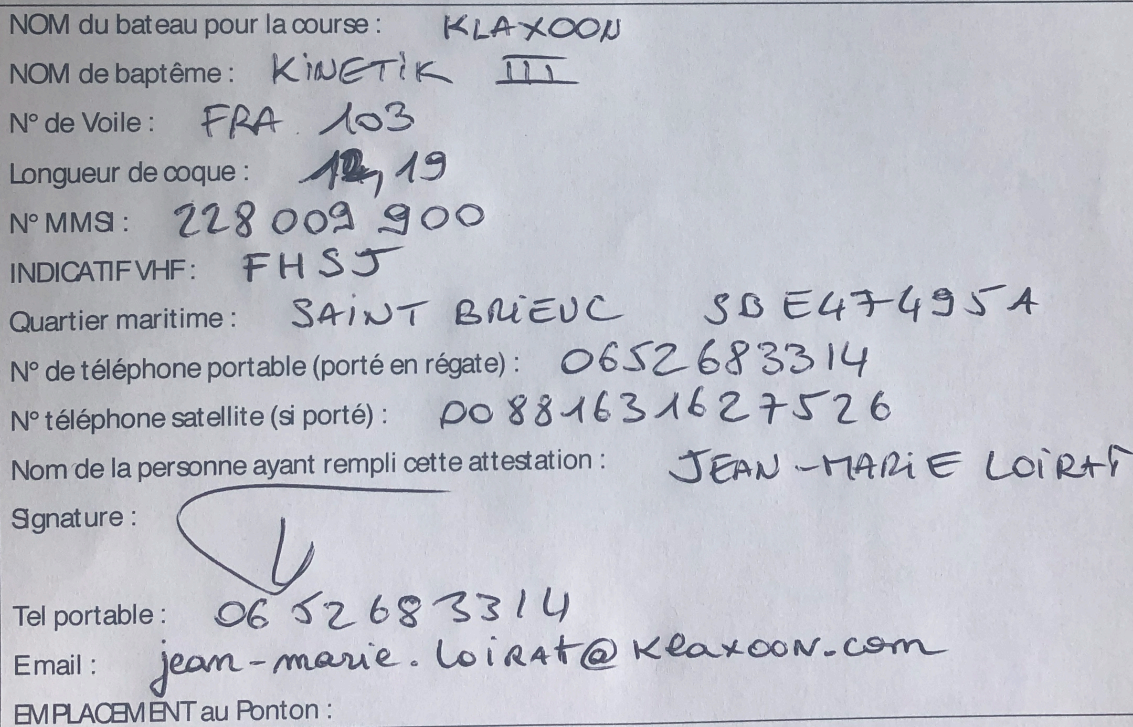 NOM du bateau pour la course : KLAXOON
NOM de baptême : KiNETiK III
N° de Voile : FRA 103
Longueur de coque : 12,19
N° MMSI : 228 009 900
INDICATIF VHF : FHSJ
Quartier maritime : SAiNT BRiEUC SB E47495A
N° de téléphone portable (porté en régate) : 0652683314
N° téléphone satellite (si porté) : 00881631627526
Nom de la personne ayant rempli cette attestation : JEAN-MARiE LOiRAT
Signature :
Tel portable : 06 52683314
Email : jean-marie.loiRAt@Klaxoon.com
EMPLACEMENT au Ponton :